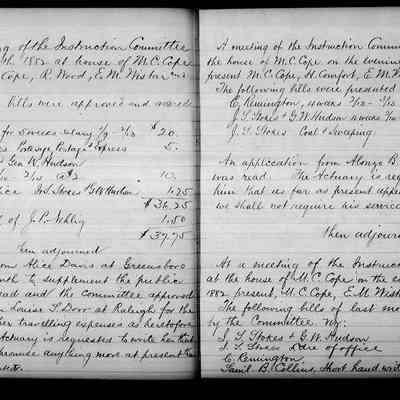 g of the Instruction Committee
th 1882 at house of M.C. Cope
Cope, R. Wood, E.M. Wistar and
bills were approved and
for Services $20.
Postage, Express 5.
Geo W. Hudson
10.
J.S. Stokes G.W. Hudson 1.25
$36.25
of J.P. 1.50
$37.75
then adjourned
from Alice Davis at Greensboro
to supplement the public
read and the Committee approved
Louise S. Dorr at Raleigh for the
her travelling expenses as heretofore
Actuary is requested to write her that
promise anything more at present than
A meeting of the Instruction Commi
the house of M.C. Cope on the evening
present M.C. Cope, H. Comfort, E.M. W
The following bills were presented
C. Remington, weeks
J.S. Stokes & G.W. Hudson weeks
J.S. Stokes Coal & Sweeping
An application from Alonzo B.
was read. The Actuary is req
him that as far as present appea
we shall not require his service
then adjour
At a meeting of the Instruct
at the house of M.C. Cope on the eveni
1882, present, M.C. Cope, E.M. Wist
The following bills of last mo
by the Committee viz:
J.S. Stokes & G.W. Hudson
J.S. Stokes Care of office
C. Remington
Saml. B. Collins, Short hand writ